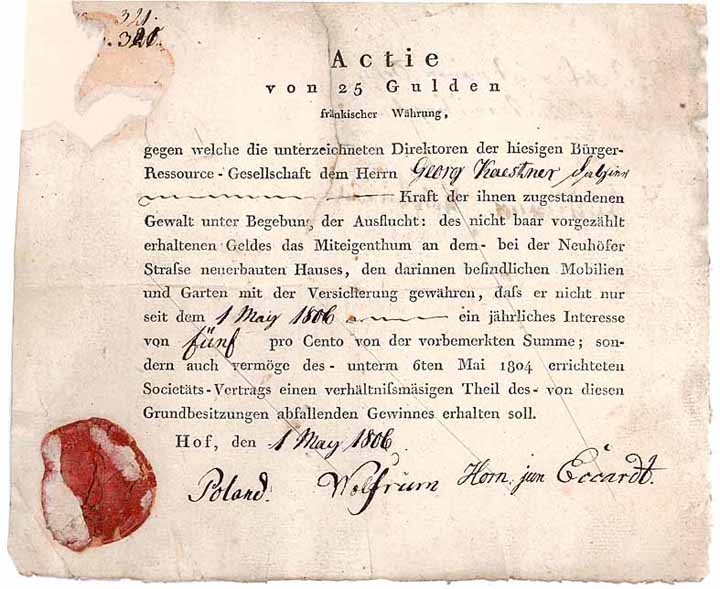 321.
. 321.
Actie
von 25 Gulden
fränkischer Währung,
gegen welche die unterzeichneten Direktoren der hiesigen Bürger-
Ressource-Gesellschaft dem Herrn Georg Kaestner
Kraft der ihnen zugestandenen
Gewalt unter Begebung der Ausflucht: des nicht baar vorgezählt
erhaltenen Geldes das Miteigenthum an dem- bei der Neuhöfer
Strafse neuerbauten Hauses, den darinnen befindlichen Mobilien
und Garten mit der Versicherung gewähren, dafs er nicht nur
seit dem 1 May 1806 ein jährliches Interesse
von fünf pro Cento von der vorbemerkten Summe; son-
dern auch vermöge des- unterm 6ten Mai 1804 errichteten
Societäts-Vertrags einen verhältnifsmäsigen Theil des- von diesen
Grundbesitzungen abfallenden Gewinnes erhalten soll.
Hof, den 1 May 1806.
Poland. Wolfrum Horn. jun Eccardt.